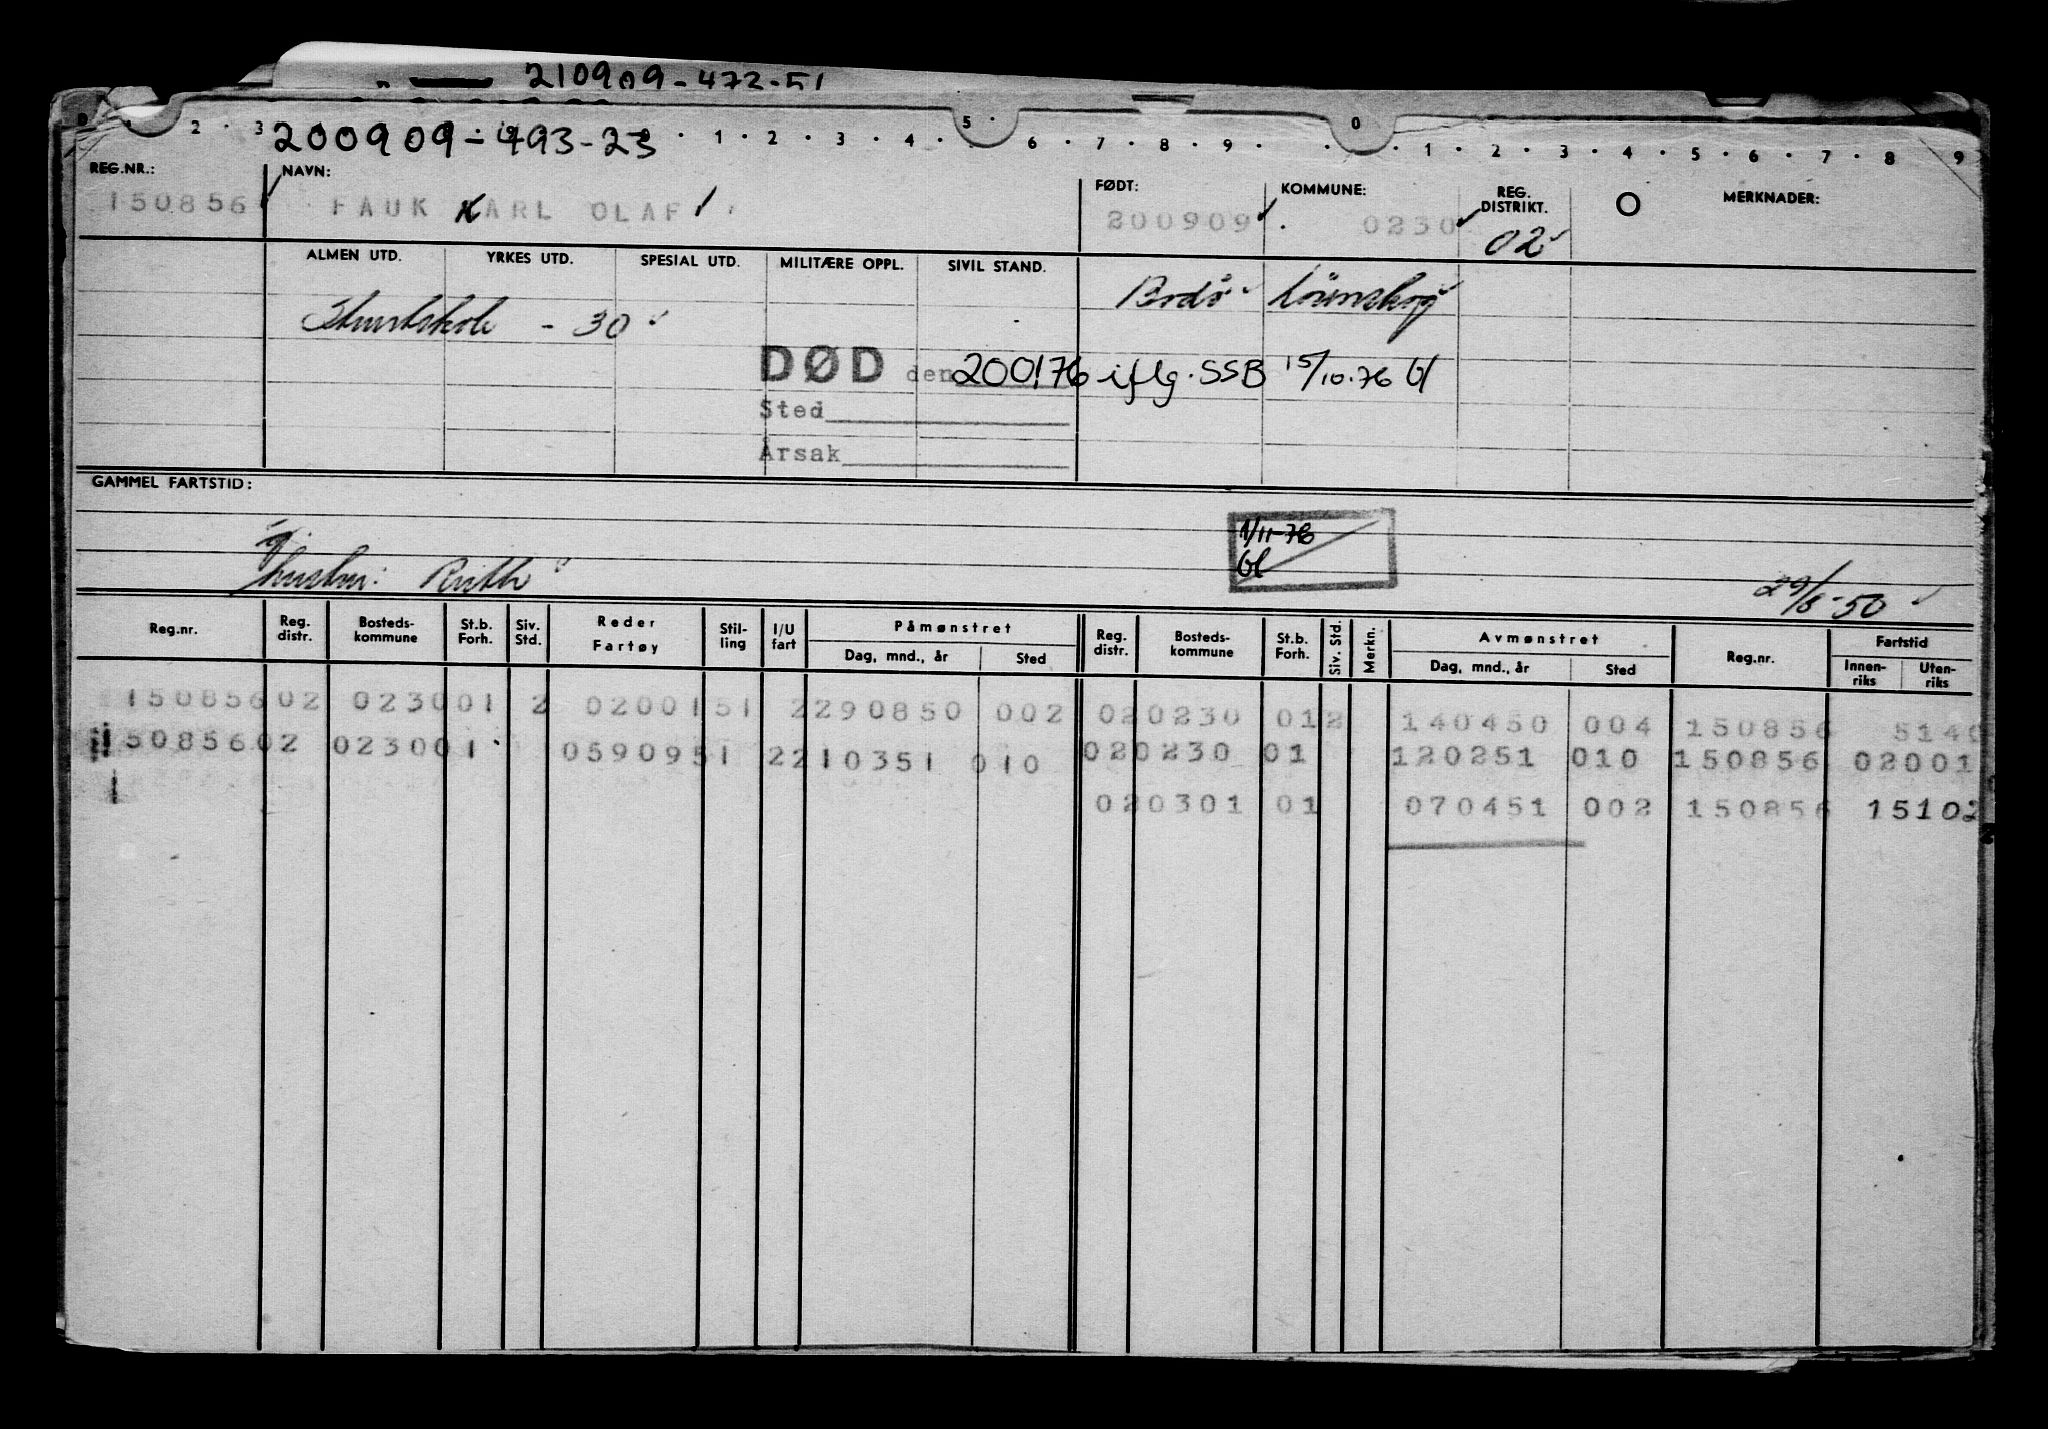 210909-472-51
2 3 5 0
200909-493-23 1 2 3 4 6 7 8 9 1 2 3 4 5 6 7 8 9
REG.NR.: NAVN: FØDT: KOMMUNE: REG. DISTRIKT. MERKNADER:
150856 FAUK KARL OLAF 200909 0230 02
ALMEN UTD. YRKES UTD. SPESIAL UTD. MILITÆRE OPPL. SIVIL STAND.
Bodö Lörenskog
- 30
DØD den 200176 iflg. SSB 15/10.76
Sted
Årsak
GAMMEL FARTSTID:
1/11-76
gj.
hustru: Ruth
29/8-50
Reg.nr. Reg. distr. Bosteds-kommune St.b. Forh. Siv. Std. Reder Fartøy Stil-ling I/U fart Påmønstret Dag, mnd., år Sted Reg. distr. Bosteds-kommune St.b. Forh. Siv. Std. Merkn. Avmønstret Dag, mnd., år Sted Reg.nr. Fartstid Innen-riks Uten-riks
150856 02 0230 01 2 0200151 2 290850 002 02 0230 01 2 140450 004 150856 5140
50856 02 0230 01 0590951 2 210351 010 02 0230 01 120251 010 150856 02001
02 0301 01 070451 002 150856 15102